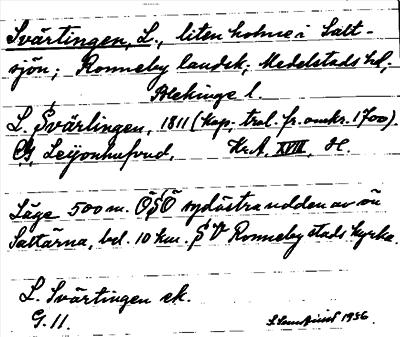 Svärtingen, L., liten holme i Salt-
sjön; Ronneby landsk; Medelstads hd,
Blekinge l.
L. Svärtingen, 1811 (kop. trol. fr. omkr. 1700).
Leijonhufvud, Kr.A. XVIII,
Läge 500 m. ÖSÖ sydöstra udden av ön
Saltärna, bel. 10 km. SV Ronneby stads kyrka.
L. Svärtingen ek.
G. 11. 1936.